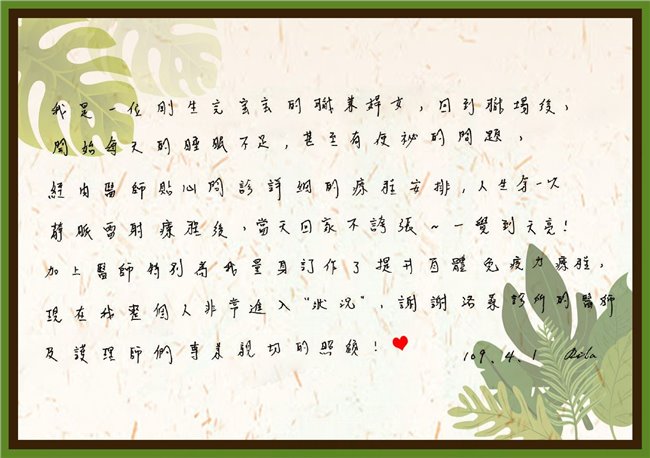 我是一位剛生完寶寶的職業婦女，回到職場後，
開始每天的睡眠不足，甚至有便祕的問題，
經由醫師貼心問診詳細的療程安排，人生第一次
靜脈雷射療程後，當天回家不誇張~一覺到天亮!
加上醫師特別為我量身訂作了提升自體免疫力療程，
現在我整個人非常進入"狀況"，謝謝 診所的醫師
及護理師們專業親切的照顧!
109.4.1